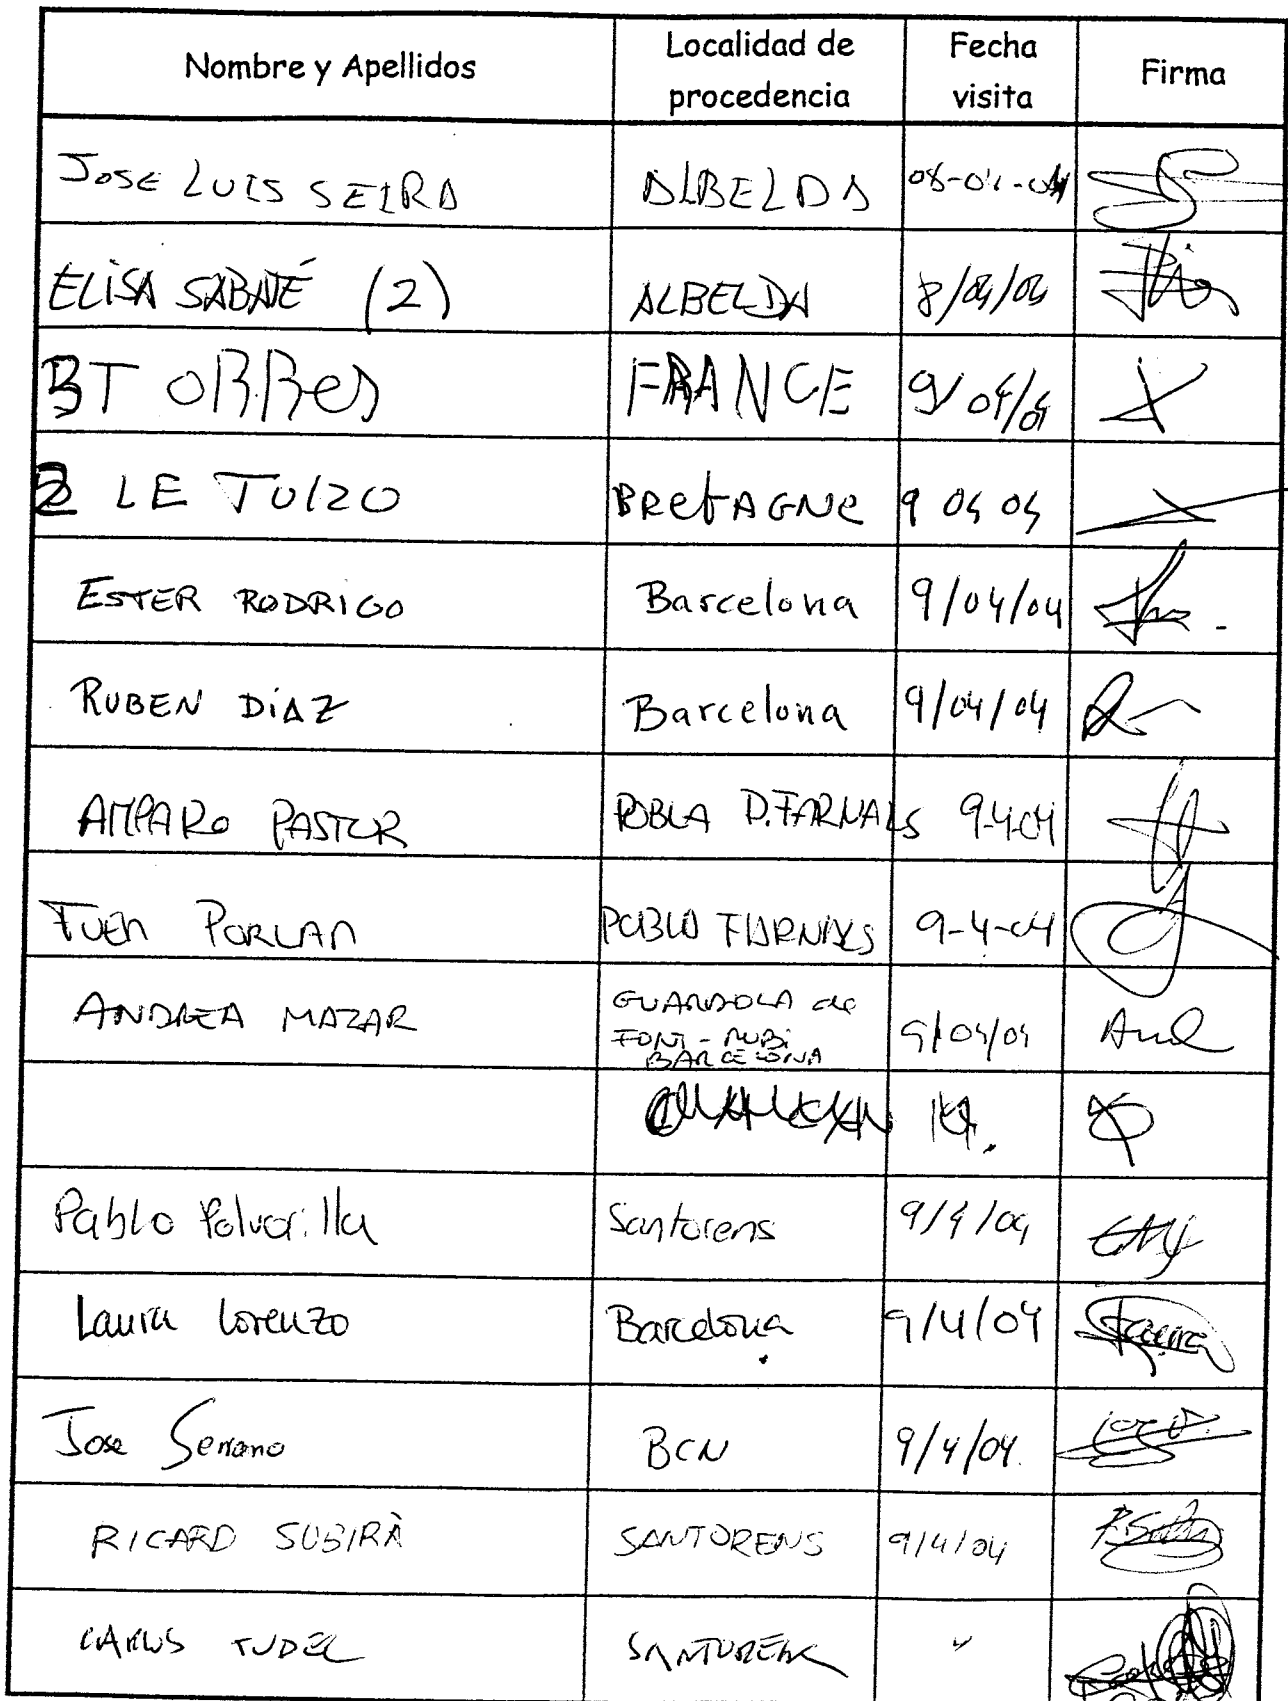 Nombre y Apellidos Localidad de procedencia Fecha visita Firma
JOSE LUIS SEIRA ALBELDA 08-04-04
ELISA SABATÉ (2) ALBELDA 8/04/04
BTORRes FRANCE 9/04/04
2 LE TUIZO BRetAGNe 9 04 04
ESTER RODRIGO Barcelona 9/04/04
RUBEN DíAZ Barcelona 9/04/04
AMPARO PASTOR POBLA D.FARNALS 9-4-04
PORLAN POBLA FARNALS 9-4-04
ANDREA MAZAR GUARDOLA de
FONT-RUBí
BARCELONA 9/04/04
Pablo Polvorilla Santorens 9/4/04
Laura Lorenzo Barcelona 9/4/04
Jose Serrano BCN 9/4/04
RICARD SUBIRÀ SANTORENS 9/4/04
CARLOS TUDEL "